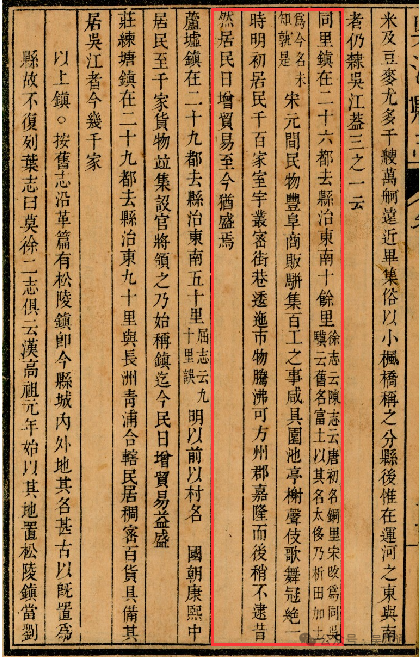 米及豆麥尤多千艘萬舸遠近畢集俗以小楓橋稱之分縣後惟在運河之東與南
者仍隸吳江蓋三之一云
同里鎮在二十六都去縣治東南十餘里徐志云陳志云唐初名銅里宋改爲同吳驥云舊名富土以其名太侈乃析田加土
爲今名未知孰是 宋元間民物豐阜商販駢集百工之事咸具園池亭榭聲伎歌舞冠絕一
時明初居民千百家室宇叢密街巷逶迤市物騰沸可方州郡嘉隆而後稍不逮昔
然居民日增貿易至今猶盛焉
蘆墟鎮在二十九都去縣治東南五十里屈志云九十里誤 明以前以村名 國朝康熙中
居民至千家貨物並集設官將領之乃始稱鎮迄今民日增貿易益盛
莊練塘鎮在二十九都去縣治東九十里與長洲青浦合轄民居稠密百貨具備其
居吳江者今幾千家
以上鎮○按舊志沿革篇有松陵鎮即今縣城內外地其名甚古以旣置爲
縣故不復列葉志曰莫徐二志俱云漢高祖元年始以其地置松陵鎮當劉